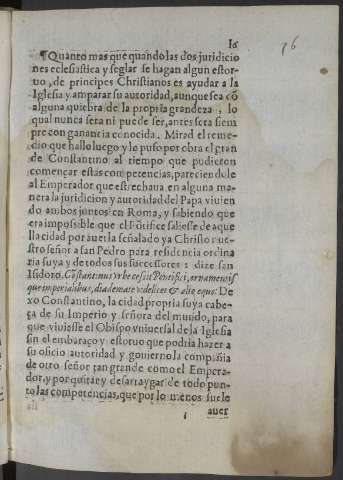 16
76
¶ Quanto mas que quando las dos juridicio
nes eclesiastica y seglar se hagan algun estor-
uo, de principes Christianos es ayudar a la
Iglesia y amparar su autoridad, aunque sea cō
alguna quiebra de la propria grandeza, lo
qual nunca sera ni puede ser, antes sera siem
pre con ganancia conocida. Mirad el reme-
dio que hallo luego y lo puso por obra el gran
de Constantino al tiempo que pudieron
començar estas competencias, pareciendole
al Emperador que estrechaua en alguna ma
nera la juridicion y autoridad del Papa viuien
do ambos juntos en Roma, y sabiendo que
era impossible que el Põtifice saliesse de aque
lla ciudad por auerla señalado ya Christo nue-
stro señor a san Pedro para residencia ordina
ria suya y de todos sus successores: dize san
Isidoro. Constantinus vrbe cessit Pontifici, ornamentis
que imperialibus, diademate videlicet & albo equo. De
xo Constantino, la ciudad propria suya cabe-
ça de su Imperio y señora del mundo, para
que viuiesse el Obispo vniuersal de la Iglesia
sin el embaraço y estoruo que podria hazer a
su oficio autoridad y gouierno la compañia
de otro señor tan grande como el Empera-
dor, y por quitar y desarraygar de todo pun-
to las competencias, que por lo menos suele
auer